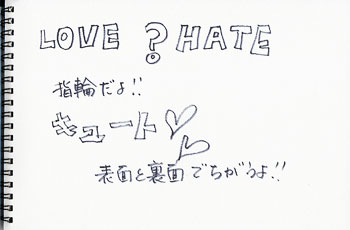 LOVE ? HATE
指輪だよ!!
キュート♡
表面と裏面でちがうよ!!